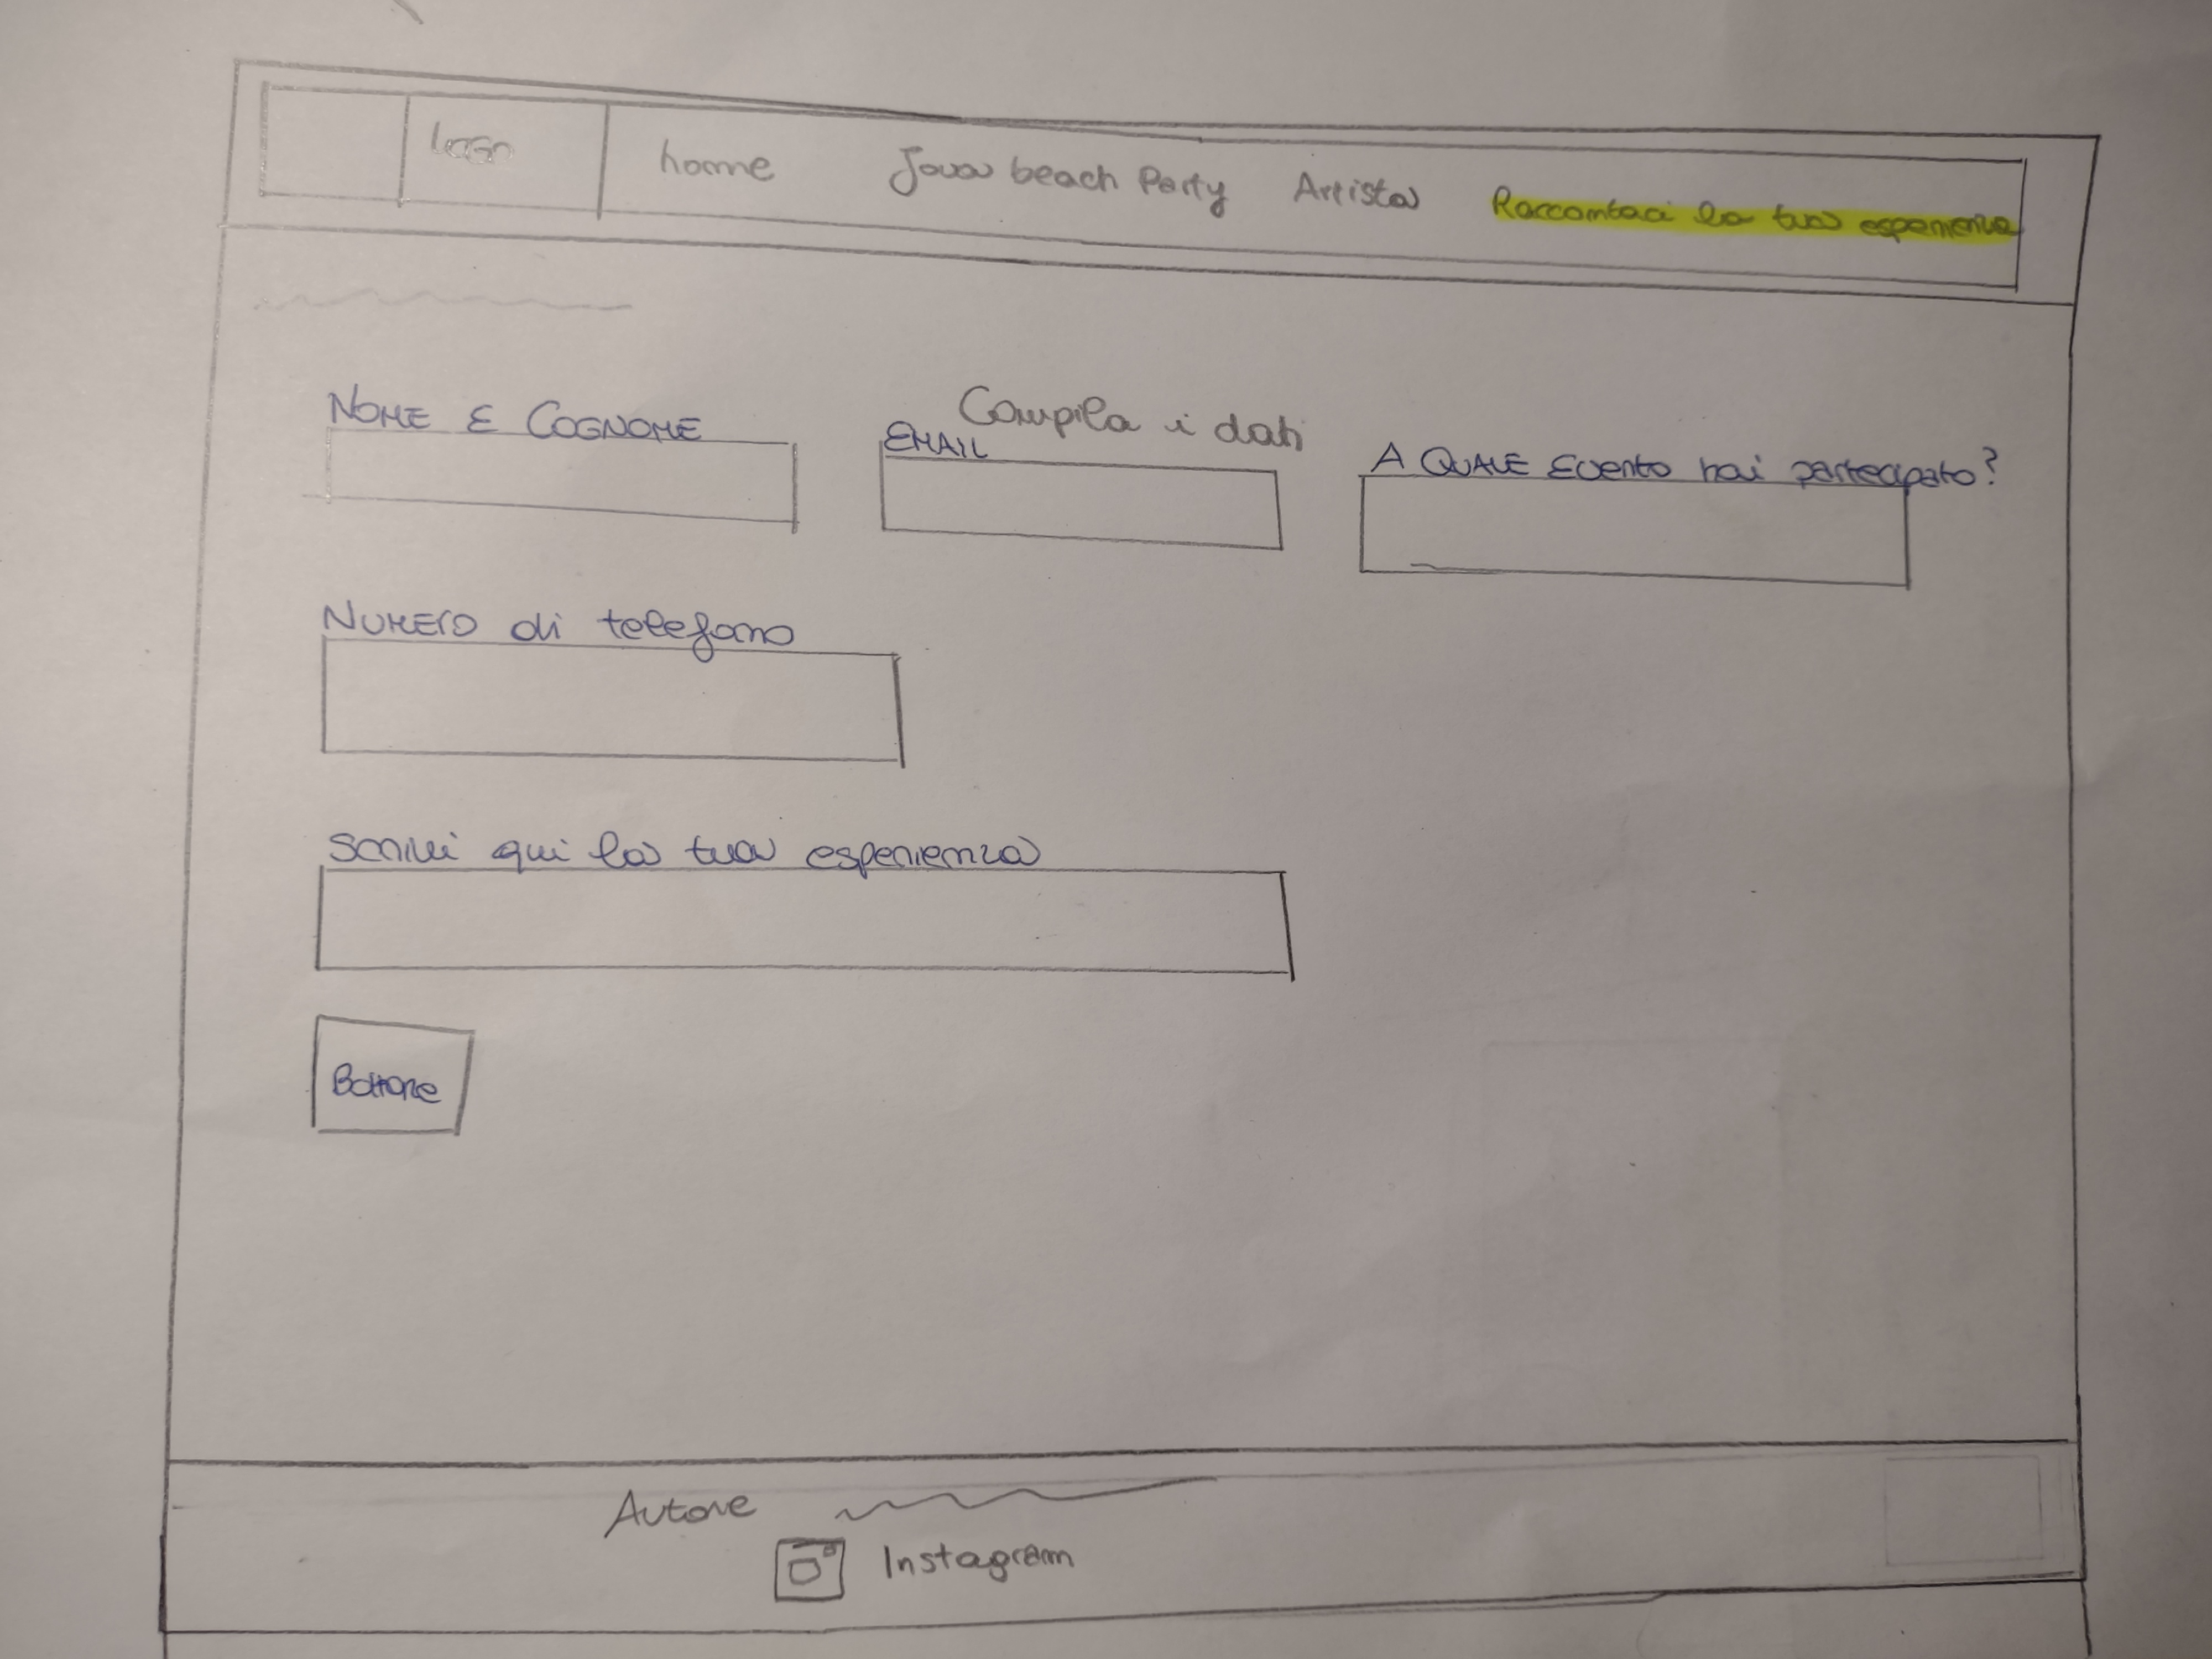 logo home Jova beach Party Artista Raccontaci la tua esperienza
Compila i dati
NOME E COGNOME EMAIL A QUALE EVENTO hai partecipato?
NUMERO di telefono
Scrivi qui la tua esperienza
Bottone
Autore
Instagram